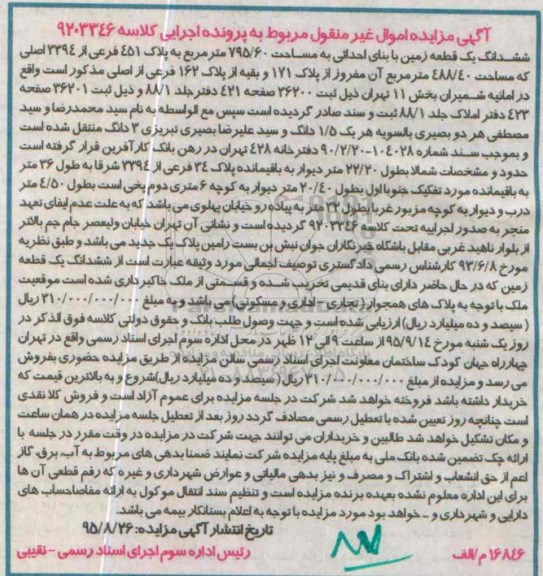 آگهی مزایده اموال غیر منقول مربوط به پرونده اجرایی کلاسه ۹۲۰۳۳۴۶
ششدانگ یک قطعه زمین با بنای احداثی به مساحت ۷۹۵/۶۰ متر مربع به پلاک ۴۵۱ فرعی از ۳۳۹۴ اصلی
که مساحت ۴۸۸/۴۰ متر مربع آن مفروز از پلاک ۱۷۱ و بقیه از پلاک ۱۶۲ فرعی از اصلی مذکور است واقع
در امانیه شمیران بخش ۱۱ تهران ذیل ثبت ۳۶۲۰۰ صفحه ۴۲۱ دفتر جلد ۸۸/۱ و ذیل ثبت ۳۶۲۰۱ صفحه
۴۲۳ دفتر املاک جلد ۸۸/۱ ثبت و سند صادر گردیده است سپس مع الواسطه به نام سید محمدرضا و سید
مصطفی هر دو بصیری بالسویه هر یک ۱/۵ دانگ و سید علیرضا بصیری تبریزی ۳ دانگ منتقل شده است
و بموجب سند شماره ۱۰۴۰۲۸-۹۰/۲/۲۰ دفترخانه ۴۲۸ تهران در رهن بانک کارآفرین قرار گرفته است
حدود و مشخصات شمالا بطول ۲۲/۲۰ متر دیوار به باقیمانده پلاک ۳۴ فرعی از ۳۳۹۴ شرقا به طول ۳۶ متر
به باقیمانده مورد تفکیک جنوبا اول بطول ۲۰/۴۰ متر دیوار به کوچه ۶ متری دوم پخی است بطول ۴/۵۰ متر
درب و دیوار به کوچه مزبور غربا بطول متر به پیاده رو خیابان پهلوی می باشد که به علت عدم ایفای تعهد
منجر به صدور اجراییه تحت کلاسه ۹۲۰۳۳۴۶ گردیده است و نشانی آن تهران خیابان ولیعصر جام جم بالاتر
از بلوار ناهید غربی مقابل باشگاه خبرنگاران جوان نبش بن بست رامین پلاک یک جدید می باشد و طبق نظریه
مورخ ۹۳/۶/۸ کارشناس رسمی دادگستری توصیف اجمالی مورد وثیقه عبارت است از ششدانگ یک قطعه
زمین که در حال حاضر دارای بنای قدیمی تخریب شده و قسمتی از ملک خاکبرداری شده است موقعیت
ملک با توجه به پلاک های همجوار (تجاری - اداری و مسکونی) می باشد و به مبلغ ۳۱۰/۰۰۰/۰۰۰/۰۰۰ ریال
( سیصد و ده میلیارد ریال) ارزیابی شده است و جهت وصول طلب بانک و حقوق دولتی کلاسه فوق الذکر در
روز یک شنبه مورخ ۹۵/۹/۱۴ از ساعت ۹ الی ۱۲ ظهر در محل اداره سوم اجرای اسناد رسمی واقع در تهران
چهارراه جهان کودک ساختمان معاونت اجرای اسناد رسمی سالن مزایده از طریق مزایده حضوری بفروش
می رسد و مزایده از مبلغ ۳۱۰/۰۰۰/۰۰۰/۰۰۰ ریال ( سیصد و ده میلیارد ریال) شروع و به بالاترین قیمت که
خریدار داشته باشد فروخته خواهد شد شرکت در جلسه مزایده برای عموم آزاد است و فروش کلا نقدی
است چنانچه روز تعیین شده با تعطیل رسمی مصادف گردد روز بعد از تعطیل جلسه مزایده در همان ساعت
و مکان تشکیل خواهد شد طالبین و خریداران می توانند جهت شرکت در مزایده در وقت مقرر در جلسه با
ارائه چک تضمین شده بانک ملی به مبلغ پایه مزایده شرکت نمایند ضمنا بدهی های مربوط به آب، برق، گاز
اعم از حق انشعاب و اشتراک و مصرف و نیز بدهی مالیاتی و عوارض شهرداری و غیره که رقم قطعی آن ها
برای این اداره معلوم نشده بعهده برنده مزایده است و تنظیم سند انتقال موکول به ارائه مفاصاحساب های
دارایی و شهرداری و ... خواهد بود مورد مزایده با توجه به اعلام بستانکار بیمه می باشد.
تاریخ انتشار آگهی مزایده: ۹۵/۸/۲۶
۱۶۸۴۶ م/الف رئیس اداره سوم اجرای اسناد رسمی - نقیبی